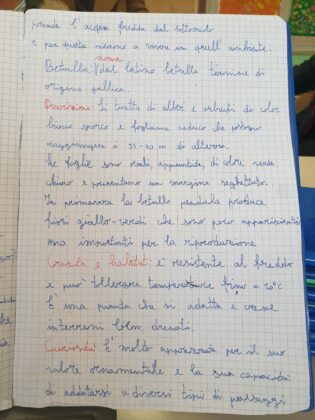 prende l'acqua fredda dal sottosuolo
e per questo riescono a vivere in quell'ambiente.
nome
Betulla: dal latino betulla termine di
origine gallica.
Descrizione: Si tratta di alberi e arbusti di color
bianco sporco e fogliame caduco che possono
raggiungere i 15-30 m di altezza.
Le foglie sono ovali, appuntite, di colore verde
chiaro e presentano un margine seghettato.
In primavera la betulla pendula produce
fiori giallo-verdi che sono poco appariscenti
ma importanti per la riproduzione
Crescita e habitat: e' resistente al freddo
e puo' tollerare temperature fino a
E' una pianta che si adatta e cresce
in terreni ben drenati.
Curiosità: E' molto apprezzata per il suo
valore ornamentale e la sua capacità
di adattarsi a diversi tipi di paesaggi